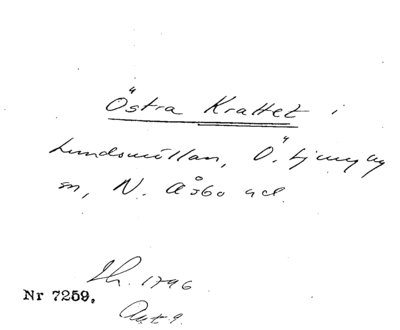 Östra Krattet i
Lundsmöllan, Ö. Ljungby
sn, N. Åsbo hd.
Sk. 1796
Nr 7259.
Akt 9.